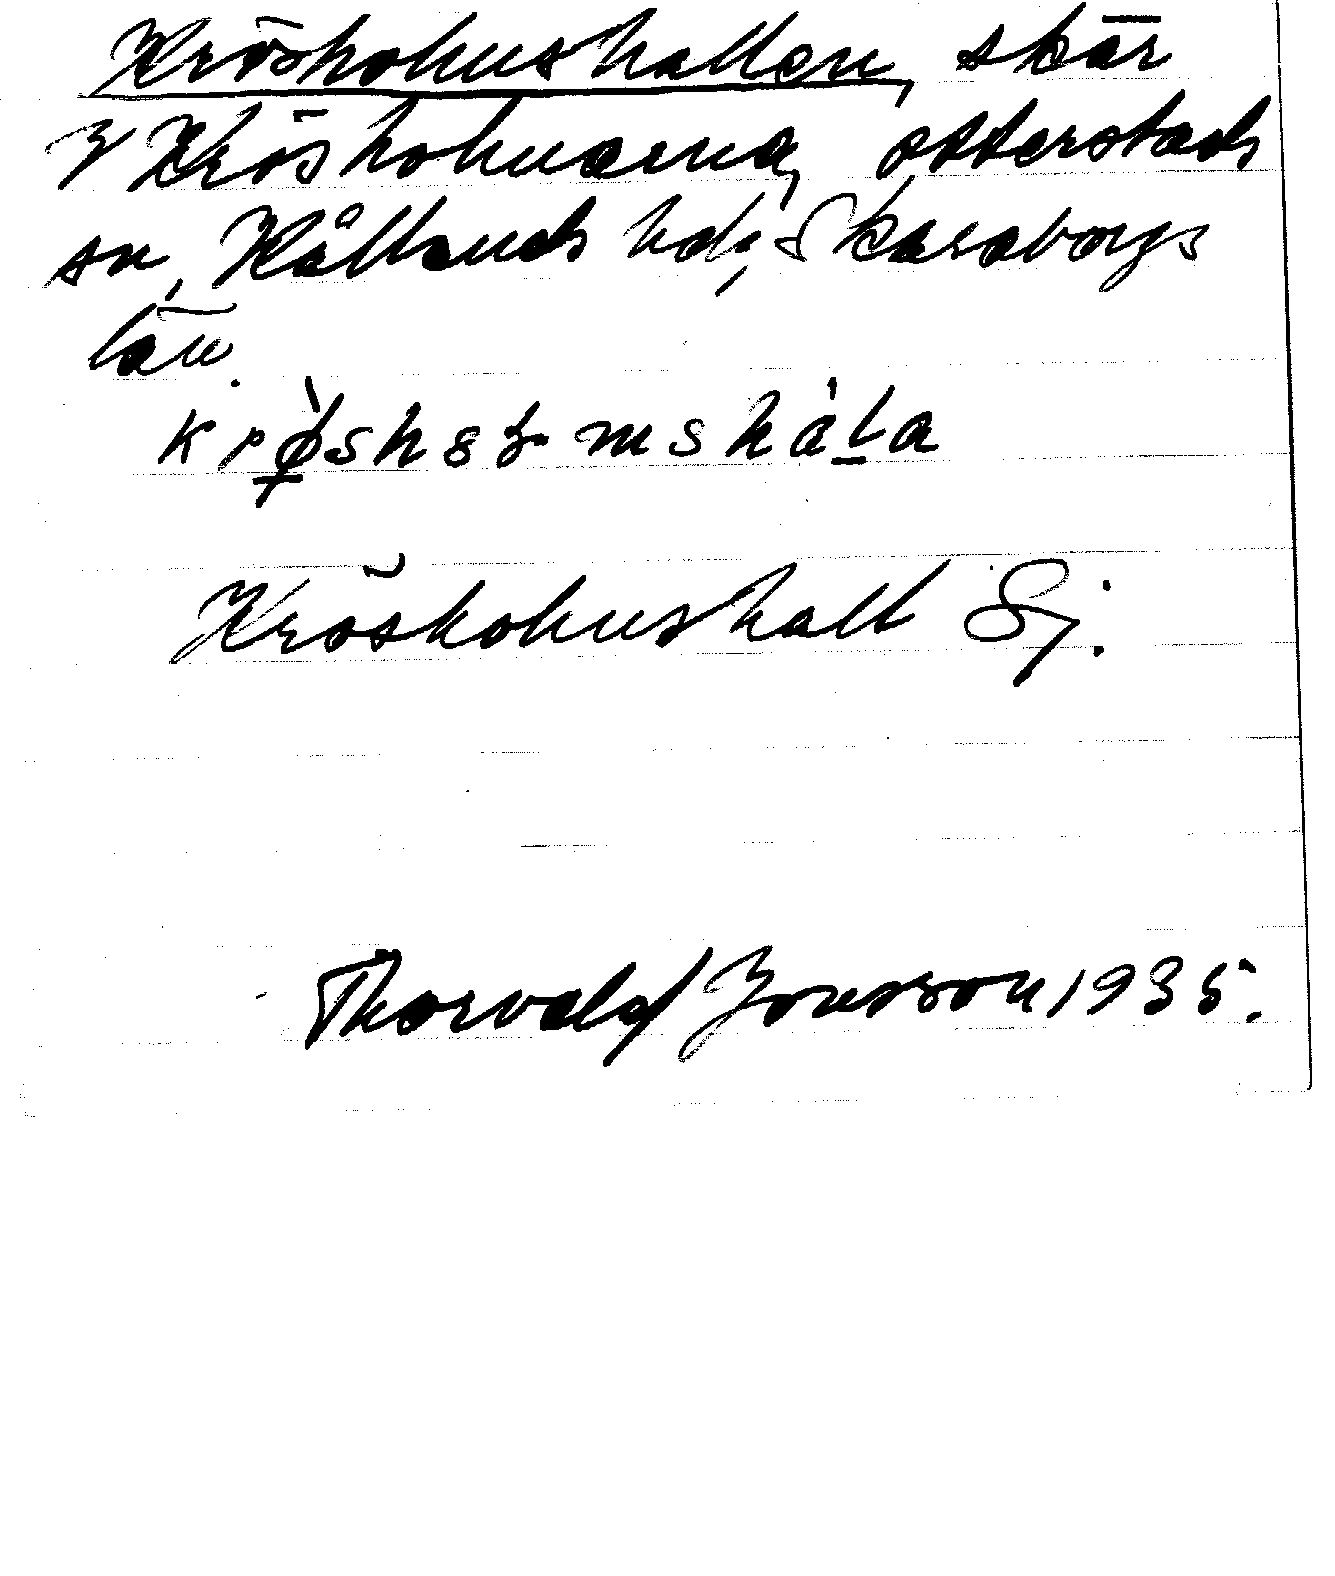 Krösholmshallen, skär
V Krösholmarna, Otterstads
sn, Kållands hd, Skaraborgs
län.
Krösholmshall Sj.
Thorvald Jonsson 1935.